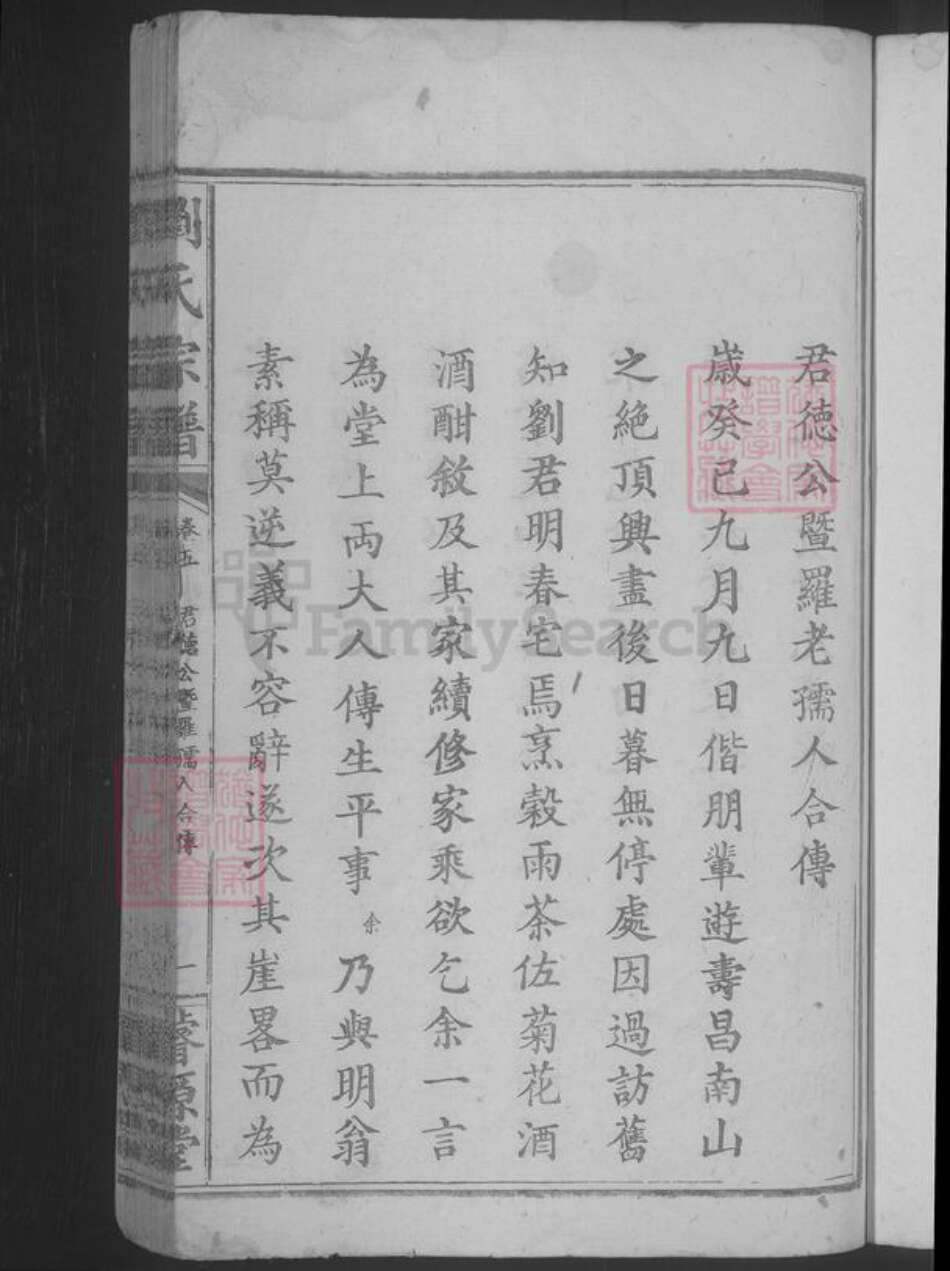 君德公暨羅老孺人合傳
歲癸巳九月九日偕朋輩遊壽昌南山
之絶頂興盡後日暮無停處因過訪舊
知劉君明春宅焉烹穀雨茶佐菊花酒
酒酣敘及其家續修家乘欲乞余一言
為堂上兩大人傳生平事余乃與明翁
素稱莫逆義不容辭遂次其崖畧而為
劉氏宗譜
卷五
君德公暨羅孺人合傳
一
睿源堂
FamilySearch